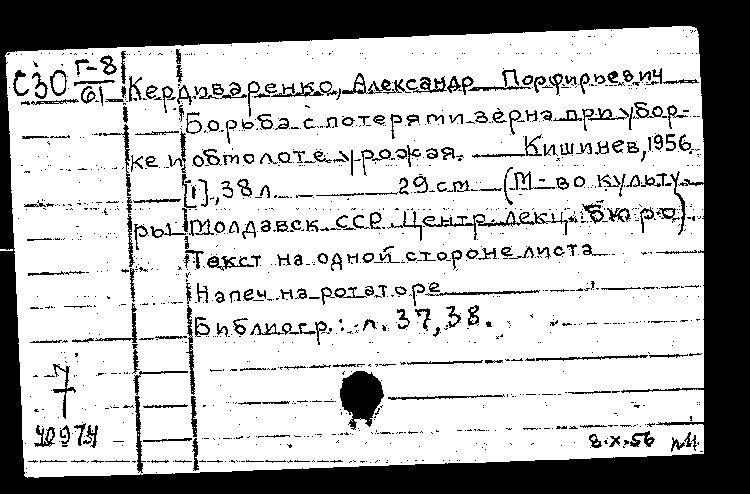 С30 Г-8
61
Кердиваренко, Александр Порфирьевич
Борьба с потерями зерна при убор-
ке и обмолоте урожая. Кишинев, 1956
[1], 38 л. 29 cm (М-во культу-
ры Молдавск. ССР. Центр. лекц. бюро).
Текст на одной стороне листа
Напеч. на ротаторе
Библиогр.: л. 37, 38.
8.X.56